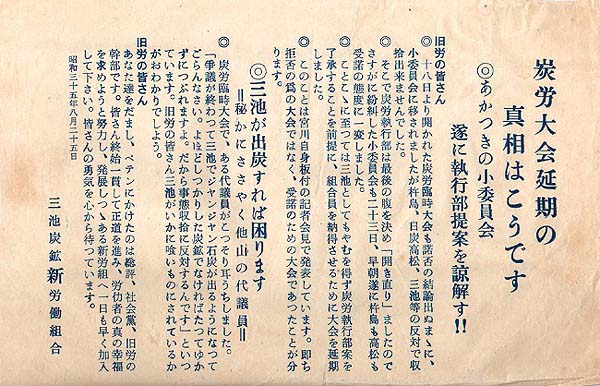 炭労大会延期の
真相はこうです
◎あかつきの小委員会
遂に執行部提案を諒解す!!
旧労の皆さん
◎十八日より開かれた炭労臨時大会も諾否の結論出ぬまゝに、
小委員会に移されましたが杵島、日炭高松、三池等の反対で収
拾出来ませんでした。
◎そこで炭労執行部は最後の腹を決め「開き直り」ましたので
さすがに紛糾した小委員会も二十三日、早朝遂に杵島も高松も
受諾の態度に一変しました。
◎ことこゝに至つては三池としてもやむを得ず炭労執行部案を
了承することを前提に、組合員を納得させるために大会を延期
しました。
◎このことは宮川自身板付の記者会見で発表しています。即ち
拒否の為の大会ではなく、受諾のための大会であつたことが分
ります。
◎三池が出炭すれば困ります
＝秘かにささやく他山の代議員＝
◎炭労臨時大会で、ある代議員がこつそり耳うちしました。
「爭議が終わつて三池でジャンジャン石炭が出るようになつて
ごらんなさい。よほどしつかりした炭鉱でなければたつてゆか
ずにつぶれますよ。だから事態収拾に反対するんです」といつ
ています。旧労の皆さん三池がいかに喰いものにされているか
がおわかりでしよう。
旧労の皆さん
あなた達をだまし、ペテンにかけたのは総評、社会党、旧労の
幹部です。皆さん終始一貫して正道を進み、労仂者の真の幸福
を求めようと努力し、発展しつゝある新労組へ一日も早く加入
して下さい。皆さんの勇気を心から待つています。
昭和三十五年八月二十五日
三池炭鉱新労働組合